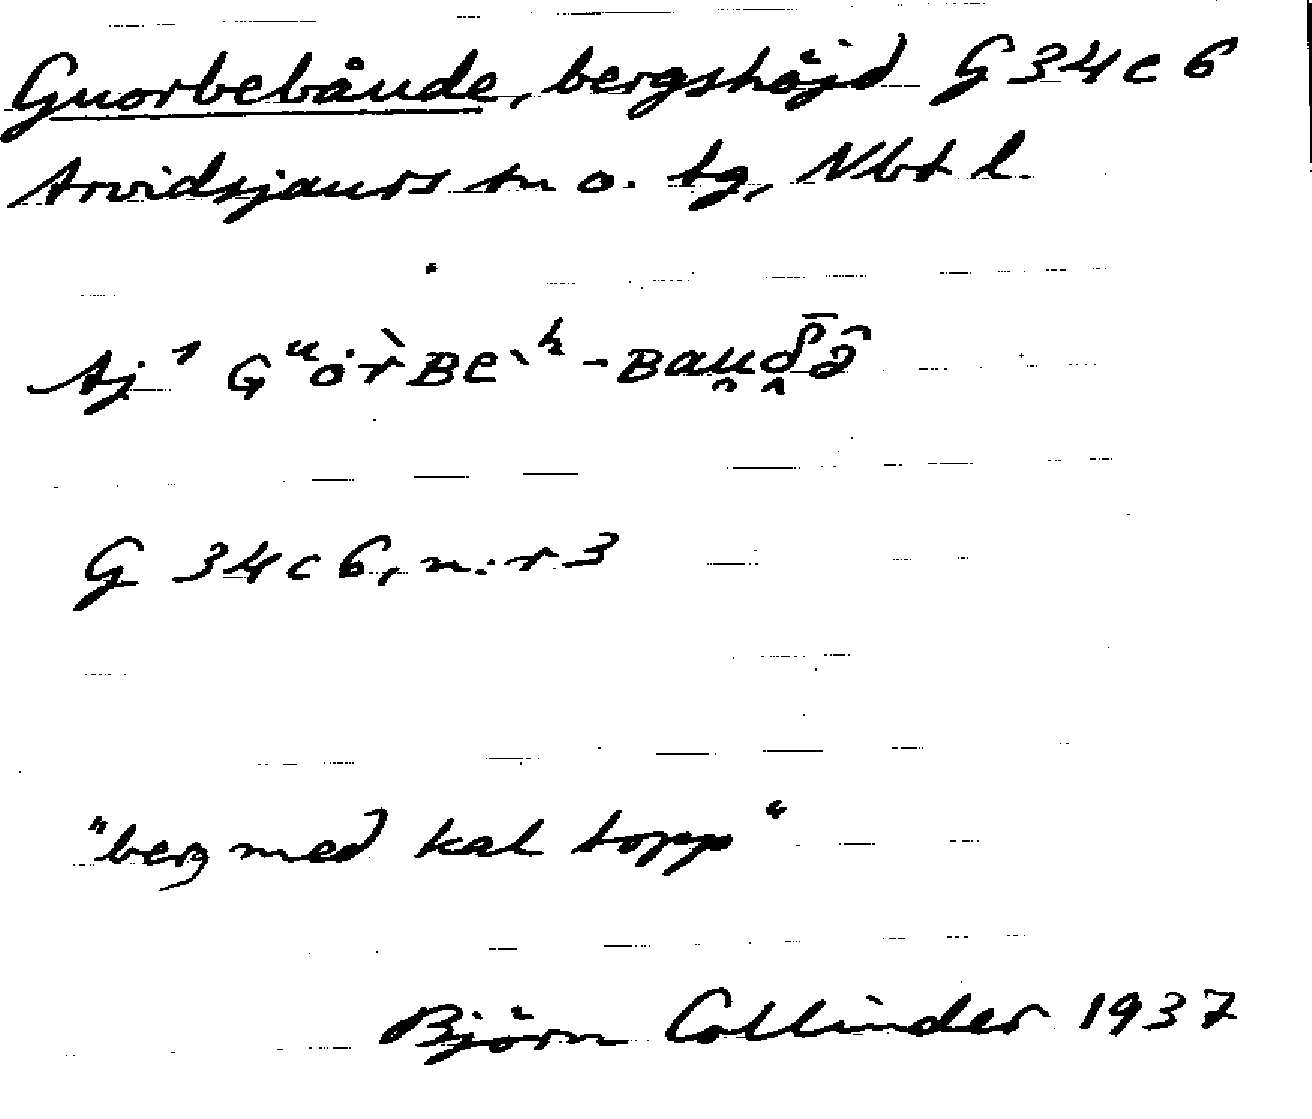 Guorbebåude, bergshöjd G 34 c 6
Arvidsjaurs sn o. tg, Nbt l.
Aj¹ Gᵘȯr̀ʙèʰ-ʙau̯δ̯̄ə̑
G 34 c 6, n:r 3
"berg med kal topp"
Björn Collinder 1937